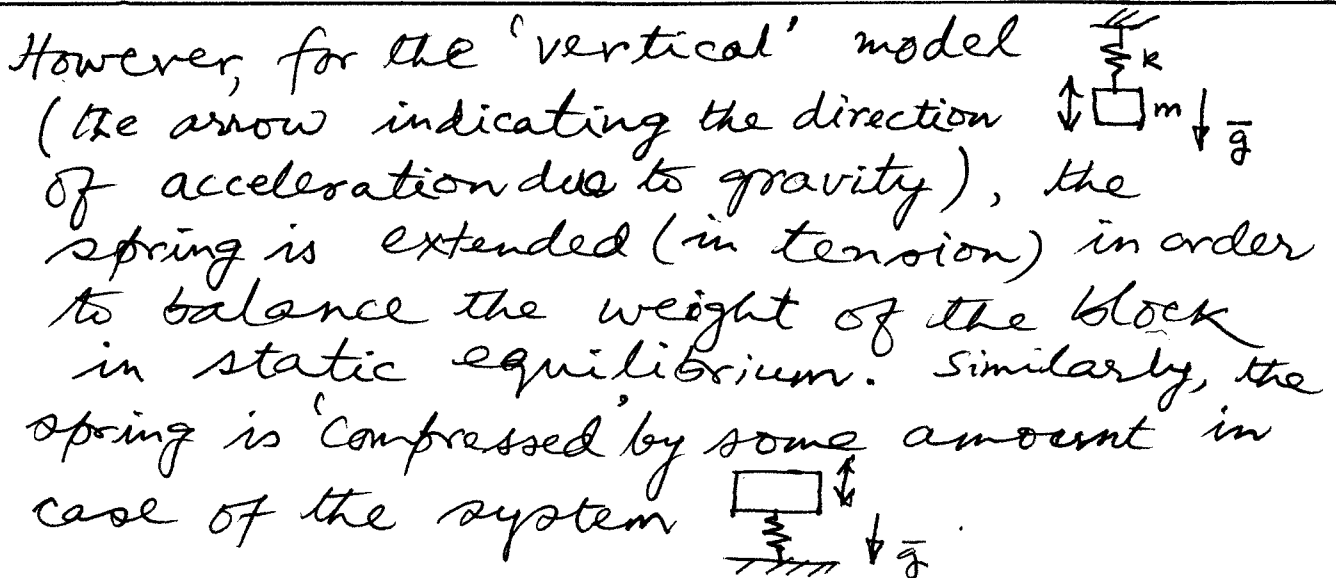 However, for the 'vertical' model
k
(the arrow indicating the direction
m
g̅
of acceleration due to gravity), the
spring is extended (in tension) in order
to balance the weight of the block
in static equilibrium. Similarly, the
spring is 'compressed' by some amount in
case of the system
g̅ .